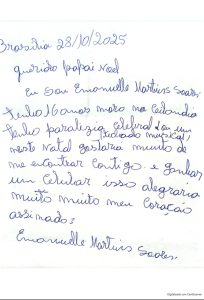 Brasília 28/10/2025
querido papai Noel
Eu Sou Emanuelle Martins Soares
tenho 16 anos moro na Ceilandia
tenho paralizia celebral sou um
teclado musical,
neste Natal gostaria muito de
me encontrar contigo e ganhar
um celular isso alegraria
muito muito meu coração
assinado:
Emanuelle Martins Soares.
Digitalizado com CamScanner